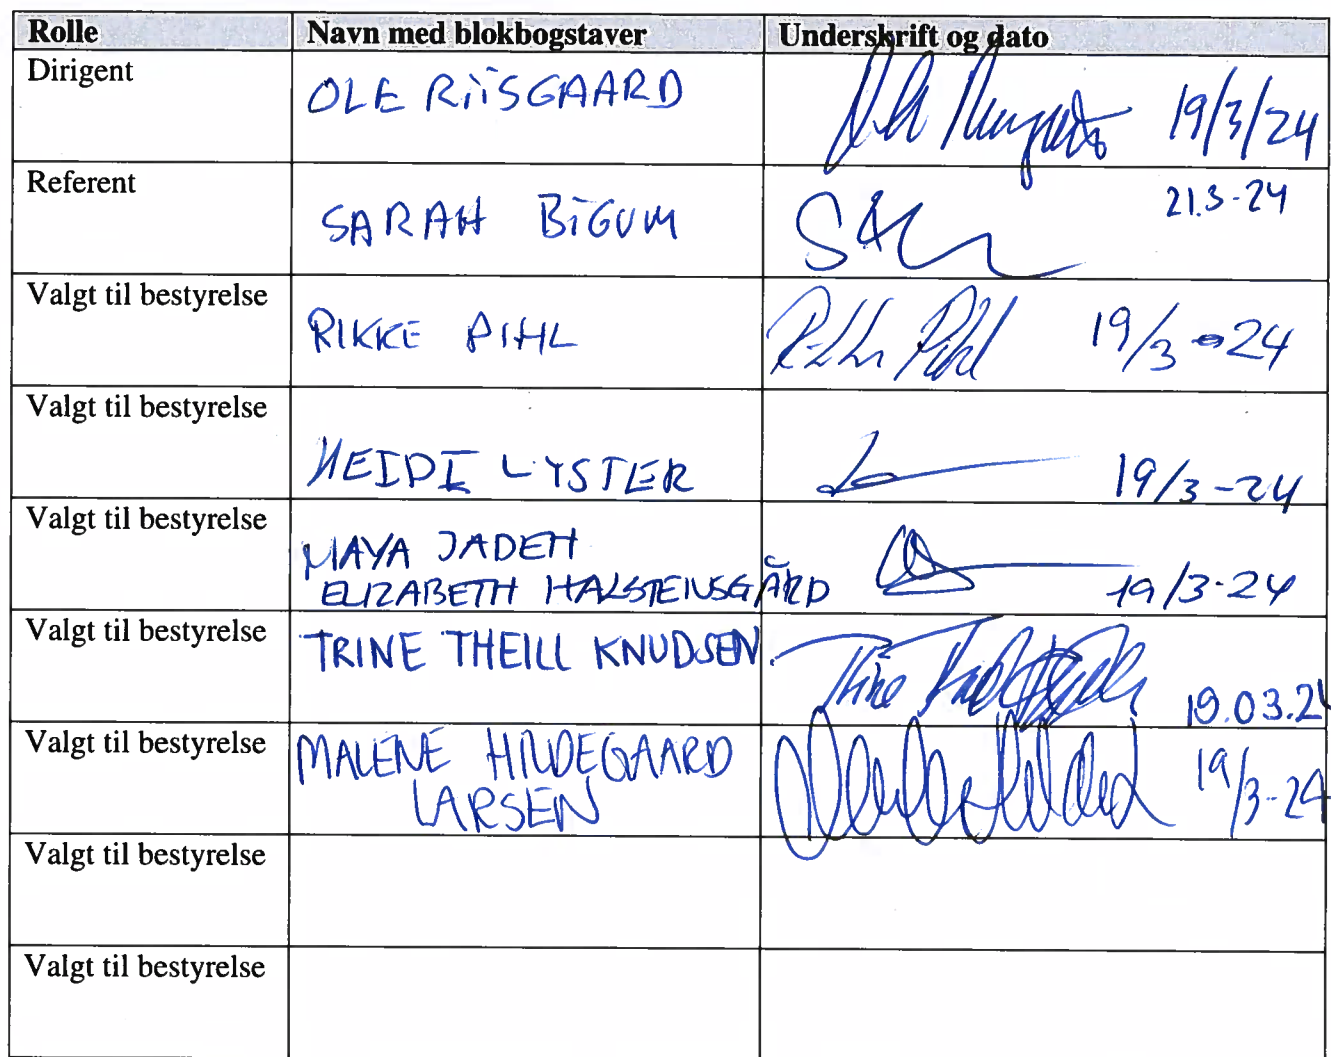 Rolle Navn med blokbogstaver Underskrift og dato
Dirigent OLE RIISGAARD 19/3/24
Referent SARAH BIGUM 21.3-24
Valgt til bestyrelse RIKKE PIHL 19/3-24
Valgt til bestyrelse HEIDI LYSTER 19/3-24
Valgt til bestyrelse MAYA JADEH
ELIZABETH HALSTEINSGÅRD 19/3-24
Valgt til bestyrelse TRINE THEILL KNUDSEN. Trine 19.03.24
Valgt til bestyrelse MALENE HILDEGAARD
LARSEN 19/3-24
Valgt til bestyrelse
Valgt til bestyrelse